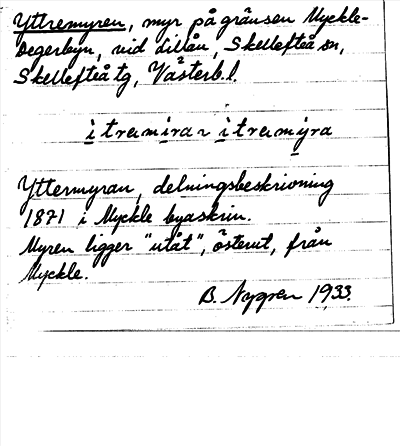 Yttremyren, myr på gränsen Myckle-
Degerbyn, vid Lillån, Skellefteå sn,
Skellefteå tg, Västerb.l.
itremirar itremýra
Yttermyran, delningsbeskrivning
1871 i Myckle byaskrin.
Myren ligger "utåt", österut, från
Myckle.
B. Nygren 1933.